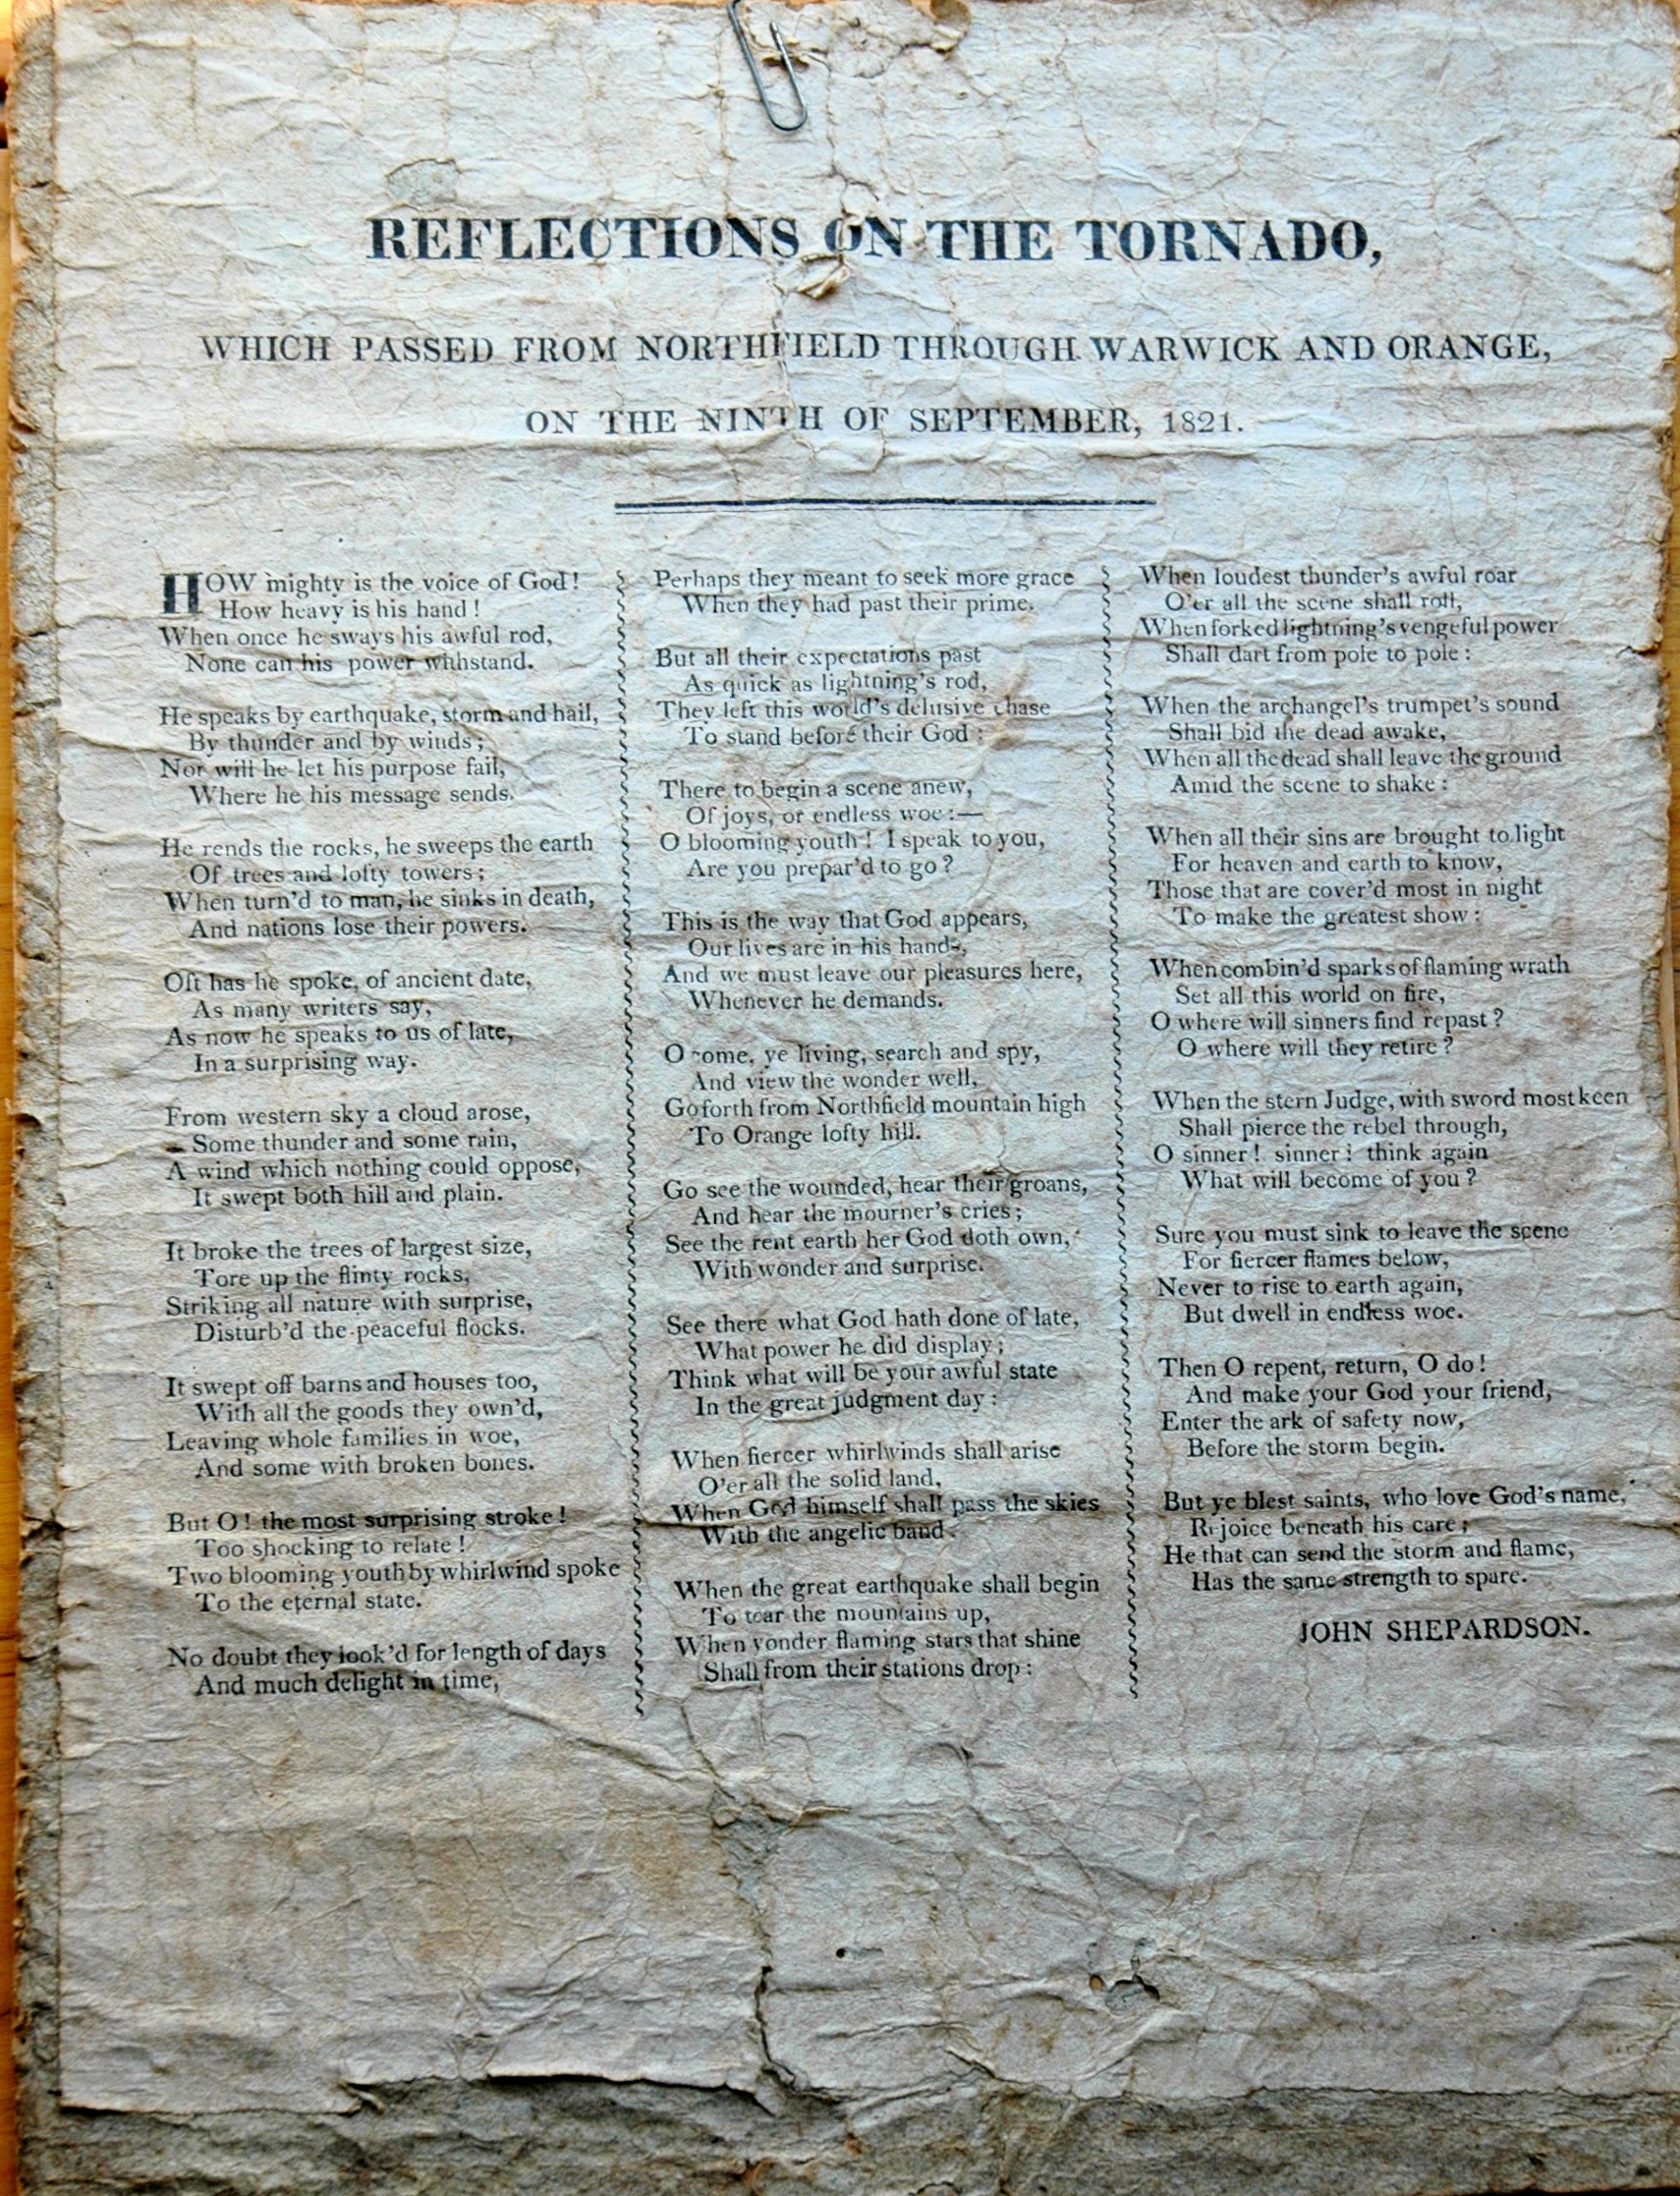 REFLECTIONS ON THE TORNADO,
WHICH PASSED FROM NORTHFIELD THROUGH WARWICK AND ORANGE,
ON THE NINTH OF SEPTEMBER, 1821.
HOW mighty is the voice of God!
How heavy is his hand!
When once he sways his awful rod,
None can his power withstand.
He speaks by earthquake, storm and hail,
By thunder and by winds;
Nor will he let his purpose fail,
Where he his message sends.
He rends the rocks, he sweeps the earth
Of trees and lofty towers;
When turn'd to man, he sinks in death,
And nations lose their powers.
Oft has he spoke, of ancient date,
As many writers say,
As now he speaks to us of late,
In a surprising way.
From western sky a cloud arose,
Some thunder and some rain,
A wind which nothing could oppose,
It swept both hill and plain.
It broke the trees of largest size,
Tore up the flinty rocks,
Striking all nature with surprise,
Disturb'd the peaceful flocks.
It swept off barns and houses too,
With all the goods they own'd,
Leaving whole families in woe,
And some with broken bones.
But O! the most surprising stroke!
Too shocking to relate!
Two blooming youth by whirlwind spoke
To the eternal state.
No doubt they look'd for length of days
And much delight in time,
Perhaps they meant to seek more grace
When they had past their prime.
But all their expectations past
As quick as lightning's rod,
They left this world's delusive chase
To stand before their God:
There to begin a scene anew,
Of joys, or endless woe:—
O blooming youth! I speak to you,
Are you prepar'd to go?
This is the way that God appears,
Our lives are in his hands,
And we must leave our pleasures here,
Whenever he demands.
O come, ye living, search and spy,
And view the wonder well,
Go forth from Northfield mountain high
To Orange lofty hill.
Go see the wounded, hear their groans,
And hear the mourner's cries;
See the rent earth her God doth own,
With wonder and surprise.
See there what God hath done of late,
What power he did display;
Think what will be your awful state
In the great judgment day:
When fiercer whirlwinds shall arise
O'er all the solid land,
When God himself shall pass the skies
With the angelic band.
When the great earthquake shall begin
To tear the mountains up,
When yonder flaming stars that shine
Shall from their stations drop:
When loudest thunder's awful roar
O'er all the scene shall roll,
When forked lightning's vengeful power
Shall dart from pole to pole:
When the archangel's trumpet's sound
Shall bid the dead awake,
When all the dead shall leave the ground
Amid the scene to shake:
When all their sins are brought to light
For heaven and earth to know,
Those that are cover'd most in night
To make the greatest show:
When combin'd sparks of flaming wrath
Set all this world on fire,
O where will sinners find repast?
O where will they retire?
When the stern Judge, with sword most keen
Shall pierce the rebel through,
O sinner! sinner! think again
What will become of you?
Sure you must sink to leave the scene
For fiercer flames below,
Never to rise to earth again,
But dwell in endless woe.
Then O repent, return, O do!
And make your God your friend,
Enter the ark of safety now,
Before the storm begin.
But ye blest saints, who love God's name,
Rejoice beneath his care;
He that can send the storm and flame,
Has the same strength to spare.
JOHN SHEPARDSON.